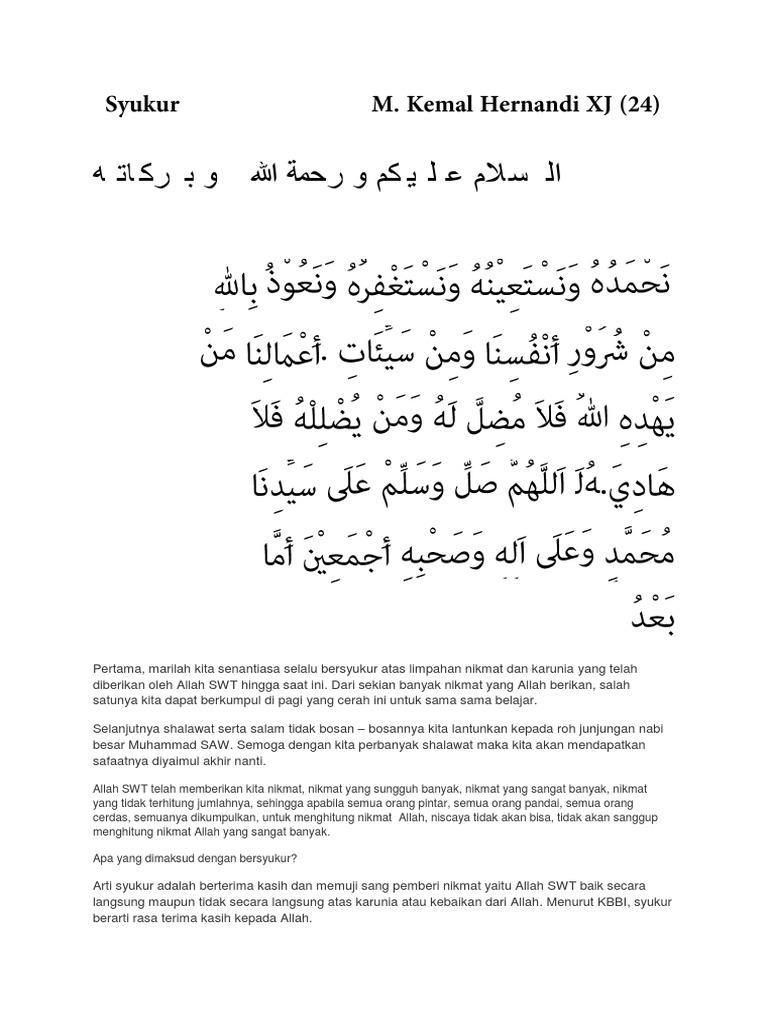 Syukur M. Kemal Hernandi XJ (24)
السلام عليكم ورحمة الله وبركاته
نَحْمَدُهُ وَنَسْتَعِيْنُهُ وَنَسْتَغْفِرُهُ وَنَعُوْذُ بِاللهِ
مِنْ شُرَوْرِ أَنْفُسِنَا وَمِنْ سَيِّئَاتِ .أَعْمَالِنَا مَنْ
يَهْدِهِ اللهُ فَلَا مُضِلَّ لَهُ وَمَنْ يُضْلِلْهُ فَلَا
هَادِيَ.لَهُ اَللَّهُمَّ صَلِّ وَسَلِّمْ عَلَى سَيِّدِنَا
مُحَمَّدٍ وَعَلَى اَلِهِ وَصَحْبِهِ أَجْمَعِيْنَ أَمَّا
بَعْدُ
Pertama, marilah kita senantiasa selalu bersyukur atas limpahan nikmat dan karunia yang telah
diberikan oleh Allah SWT hingga saat ini. Dari sekian banyak nikmat yang Allah berikan, salah
satunya kita dapat berkumpul di pagi yang cerah ini untuk sama sama belajar.
Selanjutnya shalawat serta salam tidak bosan – bosannya kita lantunkan kepada roh junjungan nabi
besar Muhammad SAW. Semoga dengan kita perbanyak shalawat maka kita akan mendapatkan
safaatnya diyaimul akhir nanti.
Allah SWT telah memberikan kita nikmat, nikmat yang sungguh banyak, nikmat yang sangat banyak, nikmat
yang tidak terhitung jumlahnya, sehingga apabila semua orang pintar, semua orang pandai, semua orang
cerdas, semuanya dikumpulkan, untuk menghitung nikmat Allah, niscaya tidak akan bisa, tidak akan sanggup
menghitung nikmat Allah yang sangat banyak.
Apa yang dimaksud dengan bersyukur?
Arti syukur adalah berterima kasih dan memuji sang pemberi nikmat yaitu Allah SWT baik secara
langsung maupun tidak secara langsung atas karunia atau kebaikan dari Allah. Menurut KBBI, syukur
berarti rasa terima kasih kepada Allah.